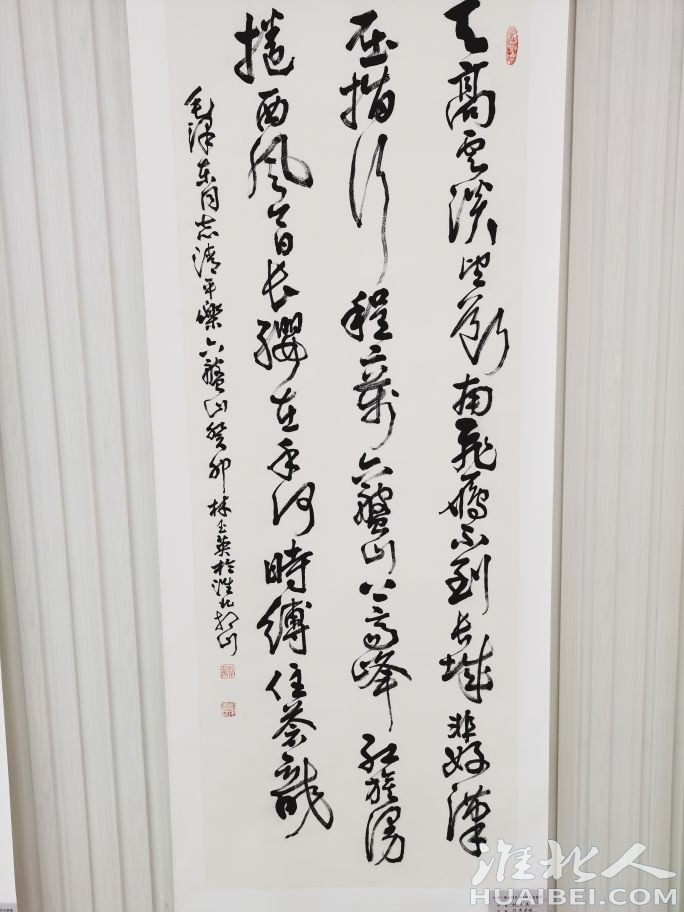 天高雲淡望斷南飛鴈不到長城非好漢
屈指行程二萬六盤山上高峰紅旗漫
捲西風今日長纓在手何時縛住蒼龍
毛澤東同志清平樂六盤山癸卯林玉英於淮北相山
淮北人
HUAIBEI.COM